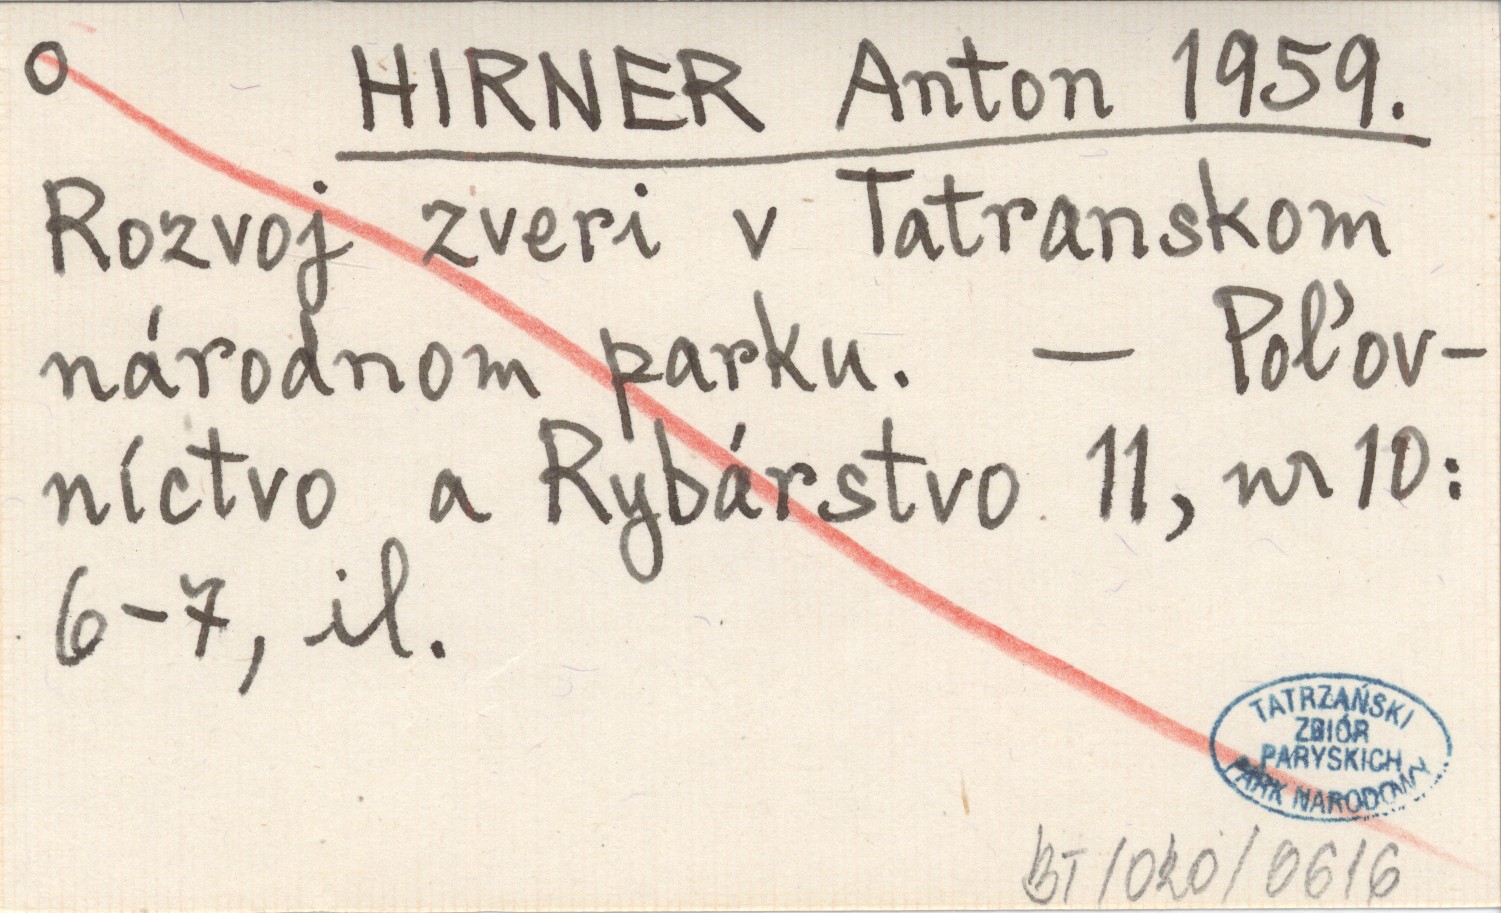 O HIRNER Anton 1959.
Rozvoj zveri v Tatranskom
národnom parku. — Poľov-
níctvo a Rybárstvo 11, nr 10:
6-7, il.
TATRZAŃSKI
ZBIÓR
PARYSKICH
PARK NARODOWY
BT/020/0616